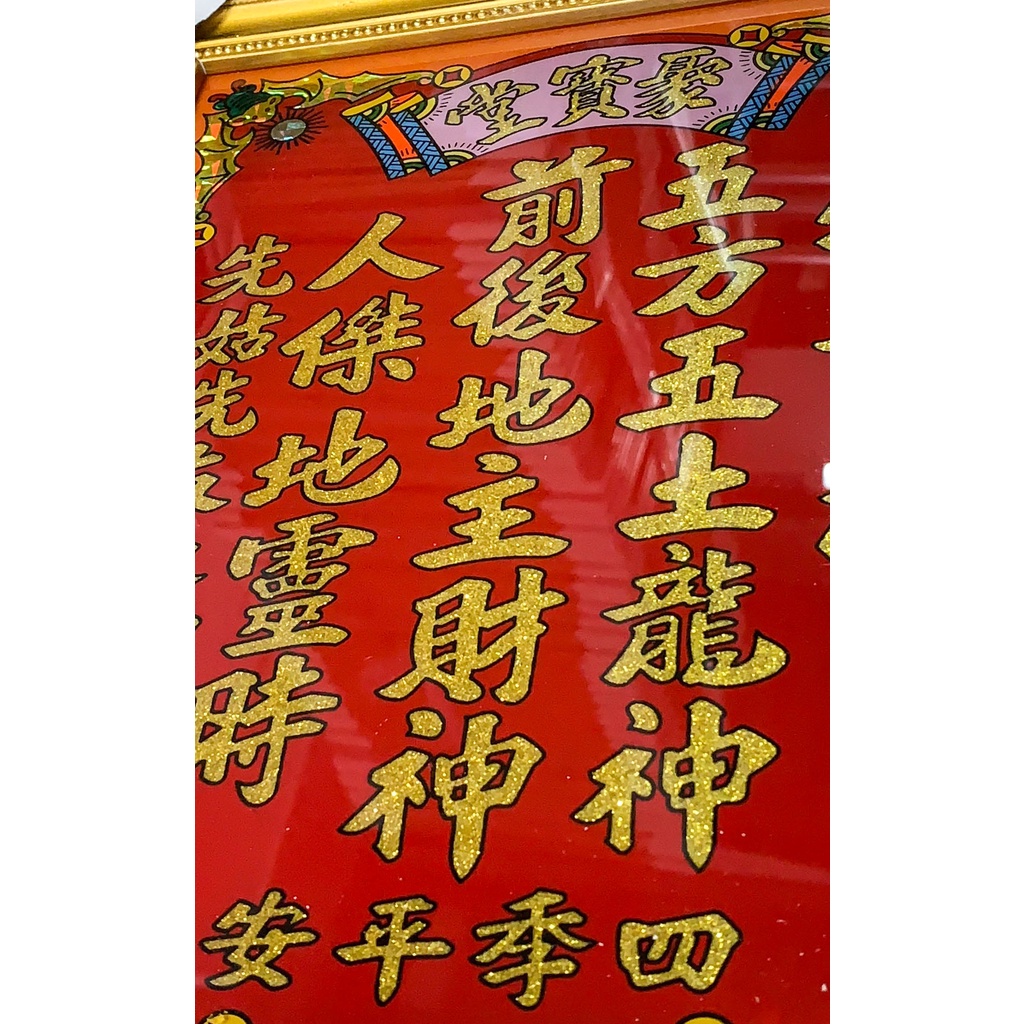 聚寶堂
五方五土龍神
前後地主財神
人傑地靈時
先姑先
四季平安